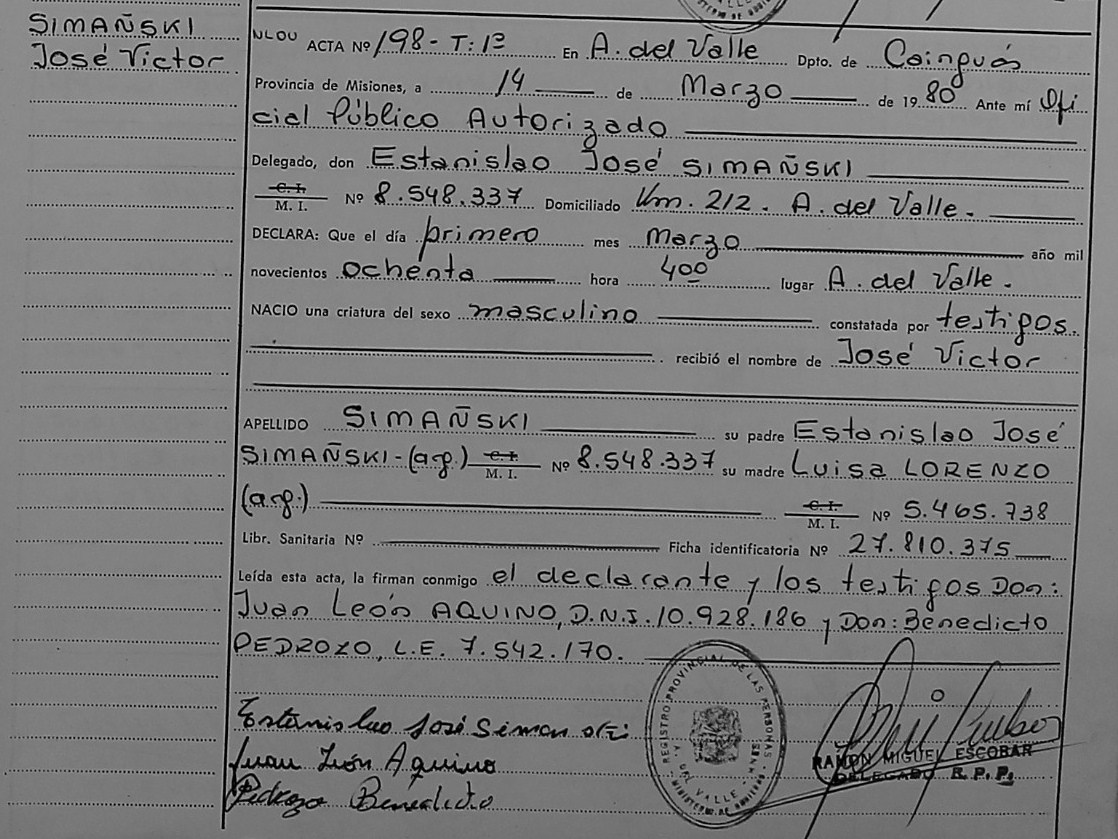 SIMAÑSKI
José Victor
ACTA Nº 198-T:1º En A. del Valle Dpto. de Cainguás
Provincia de Misiones, a 14 de Marzo de 1980 Ante mí Ofi
cial Público Autorizado
Delegado, don Estanislao José SIMAÑSKI
C. I.
M. I. Nº 8.548.337 Domiciliado Km. 212. A. del Valle.
DECLARA: Que el día primero mes marzo año mil
novecientos ochenta hora 400 lugar A. del Valle.
NACIO una criatura del sexo masculino constatada por testigos.
recibió el nombre de José Victor
APELLIDO SIMAÑSKI su padre Estanislao José
SIMAÑSKI-(arg.) C. I.
M. I. Nº 8.548.337 su madre Luisa LORENZO
(arg.) C. I.
M. I. Nº 5.465.738
Libr. Sanitaria Nº Ficha identificatoria Nº 27.810.375
Leída esta acta, la firman conmigo el declarante y los testigos Don:
Juan León AQUINO, D.N.I. 10.928.186 y Don: Benedicto
PEDROZO, L.E. 7.542.170.
REGISTRO PROVINCIAL DE LAS PERSONAS
DEL VALLE
MINISTERIO DE GOBIERNO
Estanislao José Simanski
Juan León Aquino
Pedrozo Benedicto
RAMON MIGUEL ESCOBAR
DELEGADO R. P. P.